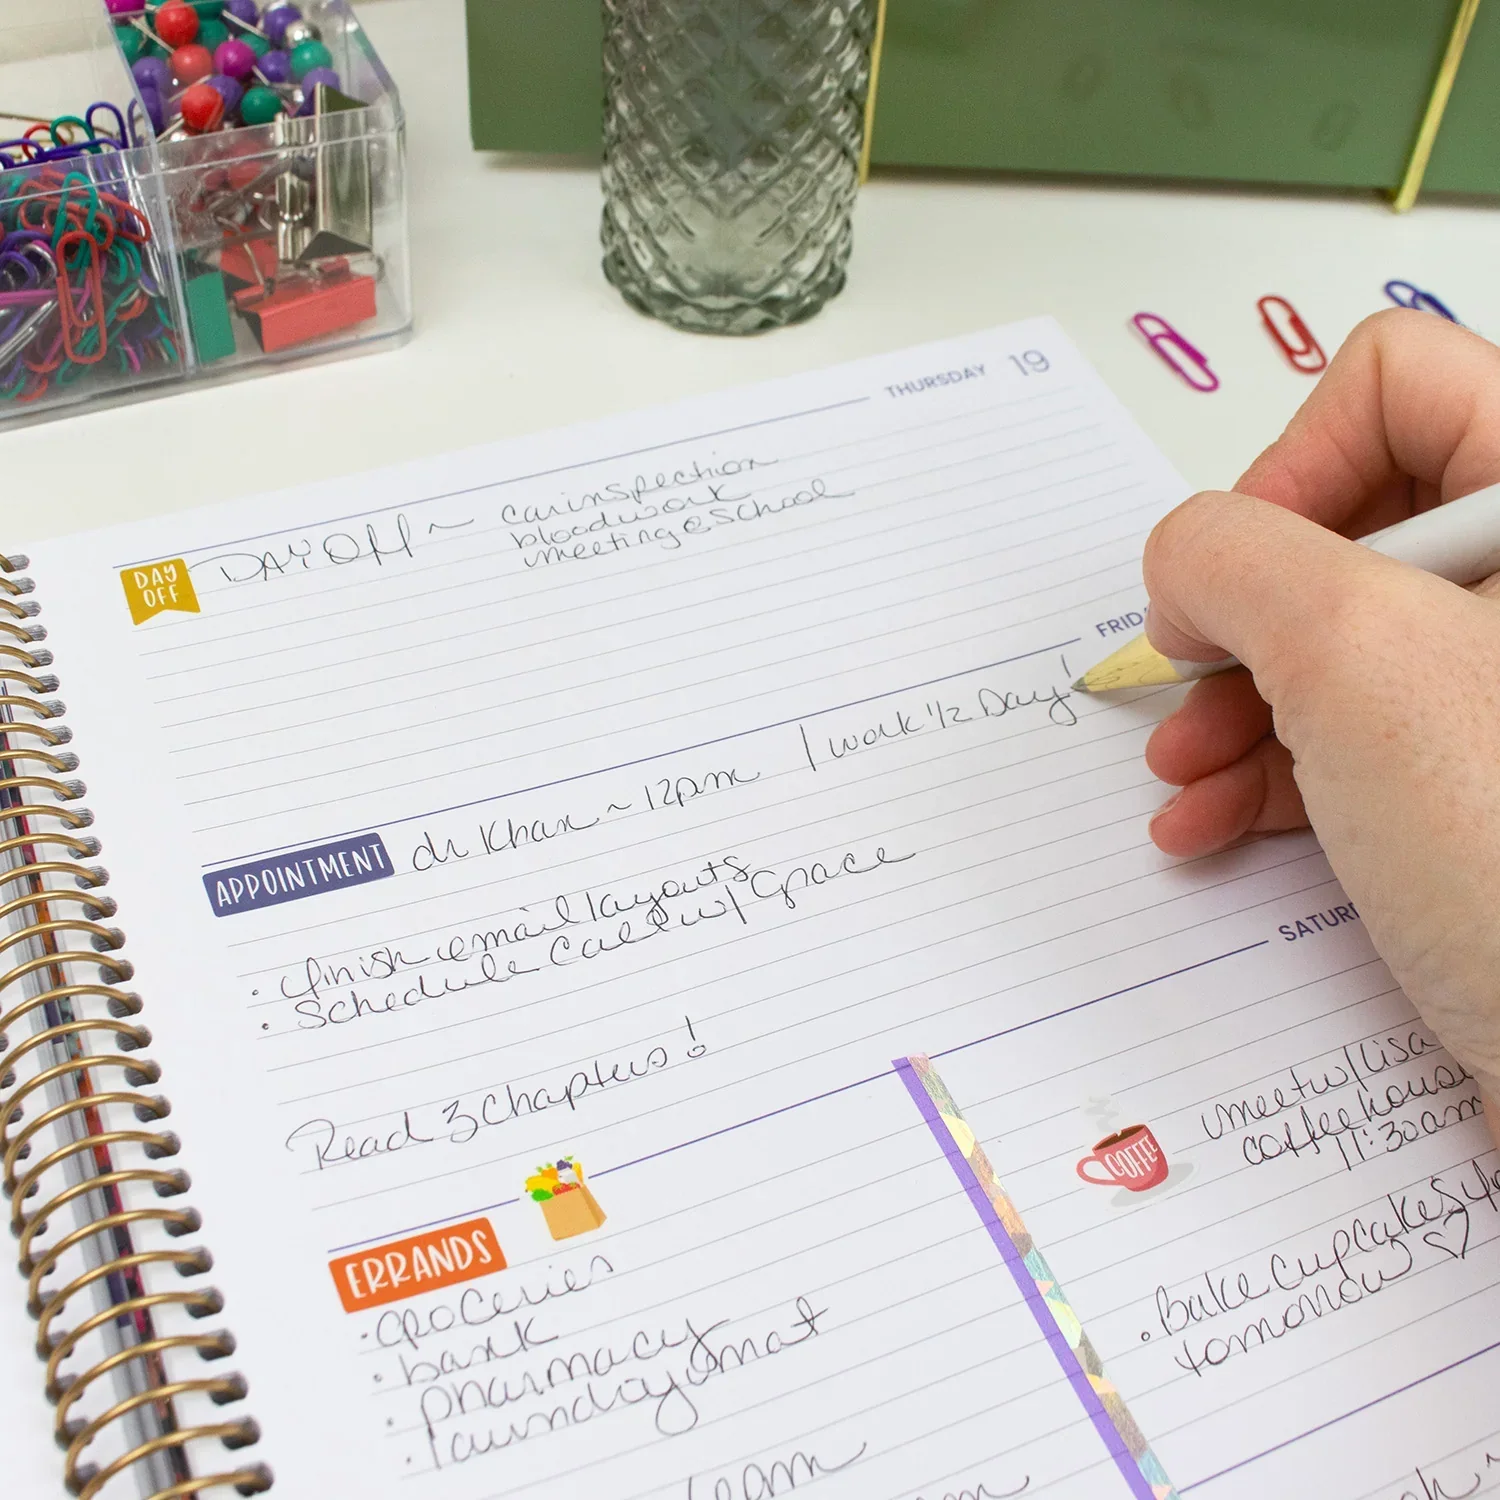 THURSDAY 19
DAY OFF
DAY Off ~ car inspection
bloodwork
meeting @ School
FRIDA
APPOINTMENT
dr Khan ~ 12pm | work 1/2 Day!
• finish email layouts
• Schedule Call w/ Grace
Read 3 Chapters!
SATUR
ERRANDS
• groceries
• bank
• pharmacy
• laundroymat
COFFEE
meet w/ Lisa
coffee house
11:30am
• Bake Cupcakes
tomorrow ♡